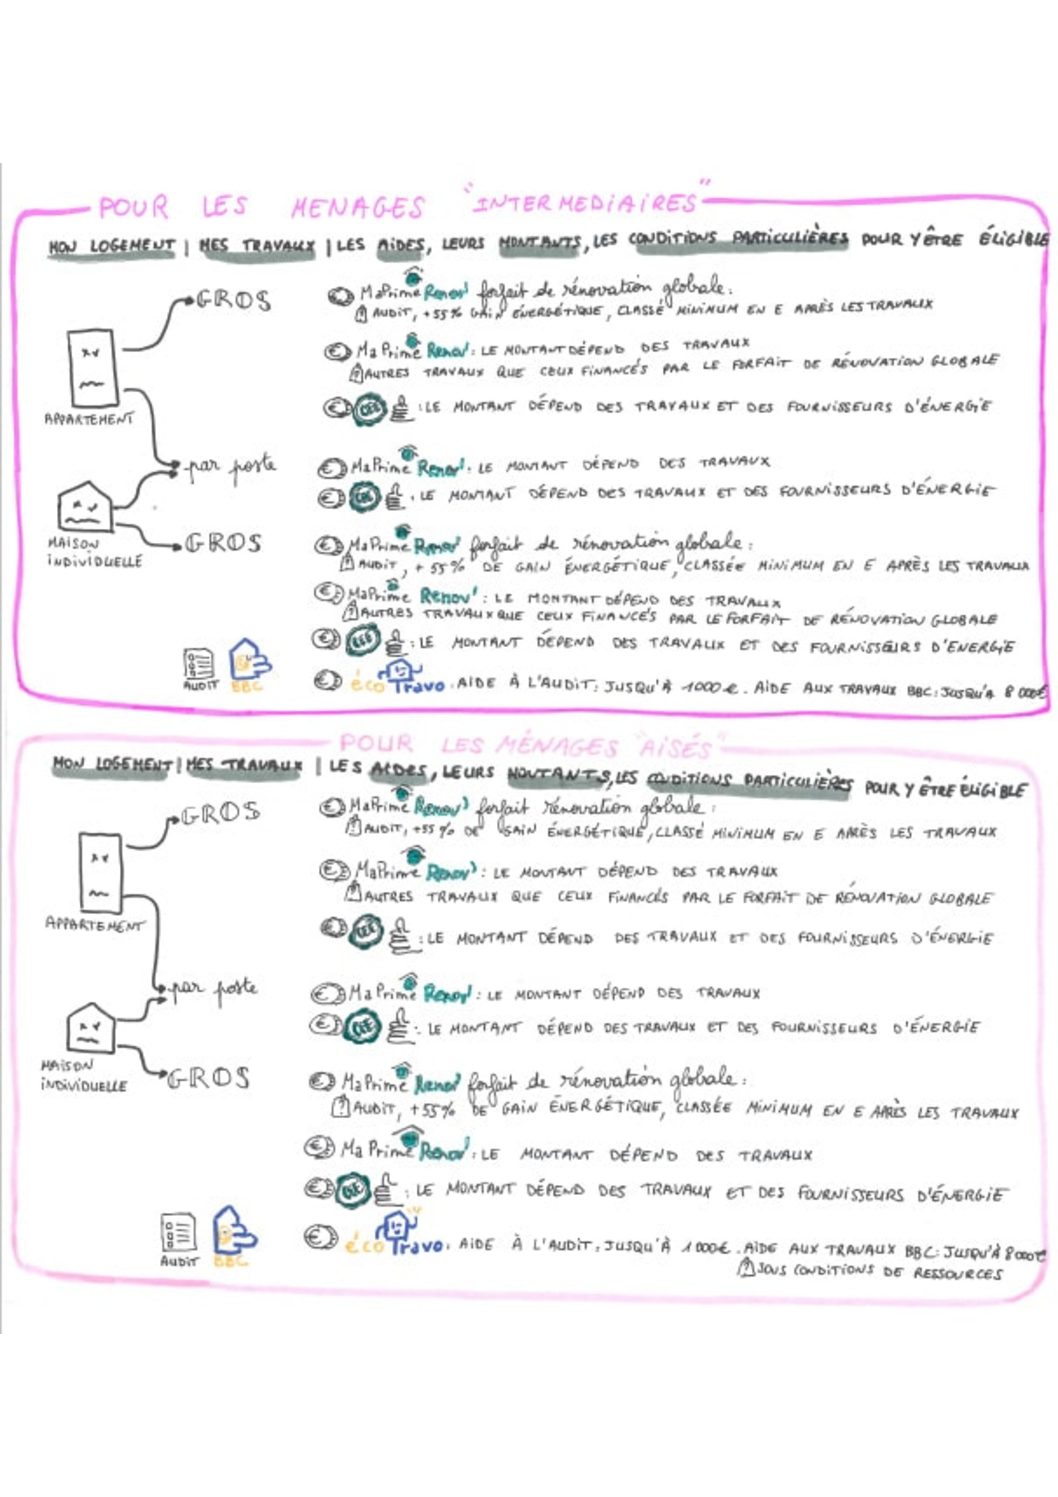 POUR LES MENAGES "INTERMEDIAIRES"
MON LOGEMENT | MES TRAVAUX | LES AIDES, LEURS MONTANTS, LES CONDITIONS PARTICULIÈRES POUR Y ÊTRE ÉLIGIBLE
GROS
MaPrime Renov' forfait de rénovation globale:
AUDIT, +55% GAIN ÉNERGÉTIQUE, CLASSÉ MINIMUM EN E APRÈS LES TRAVAUX
MaPrime Renov': LE MONTANT DÉPEND DES TRAVAUX
AUTRES TRAVAUX QUE CEUX FINANCÉS PAR LE FORFAIT DE RÉNOVATION GLOBALE
APPARTEMENT
CEE : LE MONTANT DÉPEND DES TRAVAUX ET DES FOURNISSEURS D'ÉNERGIE
par poste
MaPrime Renov': LE MONTANT DÉPEND DES TRAVAUX
CEE : LE MONTANT DÉPEND DES TRAVAUX ET DES FOURNISSEURS D'ÉNERGIE
MAISON
INDIVIDUELLE
GROS
MaPrime Renov' forfait de rénovation globale:
AUDIT, +55% DE GAIN ÉNERGÉTIQUE, CLASSÉE MINIMUM EN E APRÈS LES TRAVAUX
MaPrime Renov': LE MONTANT DÉPEND DES TRAVAUX
AUTRES TRAVAUX QUE CEUX FINANCÉS PAR LE FORFAIT DE RÉNOVATION GLOBALE
CEE : LE MONTANT DÉPEND DES TRAVAUX ET DES FOURNISSEURS D'ENERGIE
AUDIT BBC
éco Travo: AIDE À L'AUDIT: JUSQU'À 1000€. AIDE AUX TRAVAUX BBC: JUSQU'À 8 000€
POUR LES MÉNAGES "AISÉS"
MON LOGEMENT | MES TRAVAUX | LES AIDES, LEURS MONTANTS, LES CONDITIONS PARTICULIÈRES POUR Y ÊTRE ÉLIGIBLE
GROS
MaPrime Renov' forfait rénovation globale:
AUDIT, +55% DE GAIN ÉNERGÉTIQUE, CLASSÉ MINIMUM EN E APRÈS LES TRAVAUX
MaPrime Renov': LE MONTANT DÉPEND DES TRAVAUX
AUTRES TRAVAUX QUE CEUX FINANCÉS PAR LE FORFAIT DE RÉNOVATION GLOBALE
APPARTEMENT
CEE : LE MONTANT DÉPEND DES TRAVAUX ET DES FOURNISSEURS D'ÉNERGIE
par poste
MaPrime Renov': LE MONTANT DÉPEND DES TRAVAUX
CEE : LE MONTANT DÉPEND DES TRAVAUX ET DES FOURNISSEURS D'ÉNERGIE
MAISON
INDIVIDUELLE
GROS
MaPrime Renov' forfait de rénovation globale:
AUDIT, +55% DE GAIN ÉNERGÉTIQUE, CLASSÉE MINIMUM EN E APRÈS LES TRAVAUX
MaPrime Renov': LE MONTANT DÉPEND DES TRAVAUX
CEE : LE MONTANT DÉPEND DES TRAVAUX ET DES FOURNISSEURS D'ÉNERGIE
AUDIT BBC
éco Travo: AIDE À L'AUDIT: JUSQU'À 1000€. AIDE AUX TRAVAUX BBC: JUSQU'À 8000€
SOUS CONDITIONS DE RESSOURCES